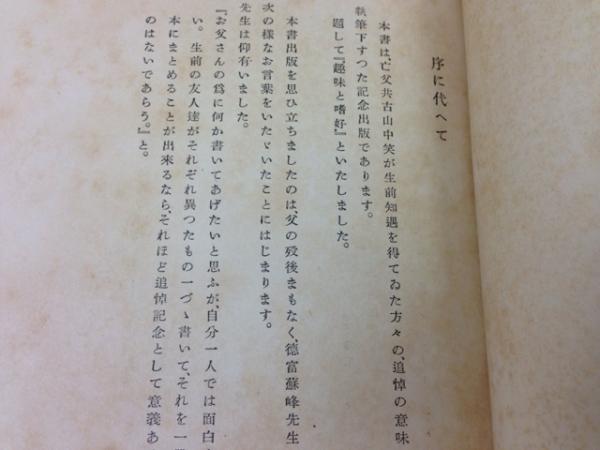 序に代へて
本書は、亡父共古山中笑が生前知遇を得てゐた方々の、追悼の意味
執筆下すつた記念出版であります。
題して『趣味と嗜好』といたしました。
本書出版を思ひ立ちましたのは、父の歿後まもなく、德富蘇峰先生
次の樣なお言葉をいたゞいたことにはじまります。
先生は仰有いました。
『お父さんの爲に何か書いてあげたいと思ふが、自分一人では面白
い。生前の友人達がそれぞれ異つたもの一づゝ書いて、それを一
本にまとめることが出來るなら、それほど追悼記念として意義あ
のはないであらう。』と。